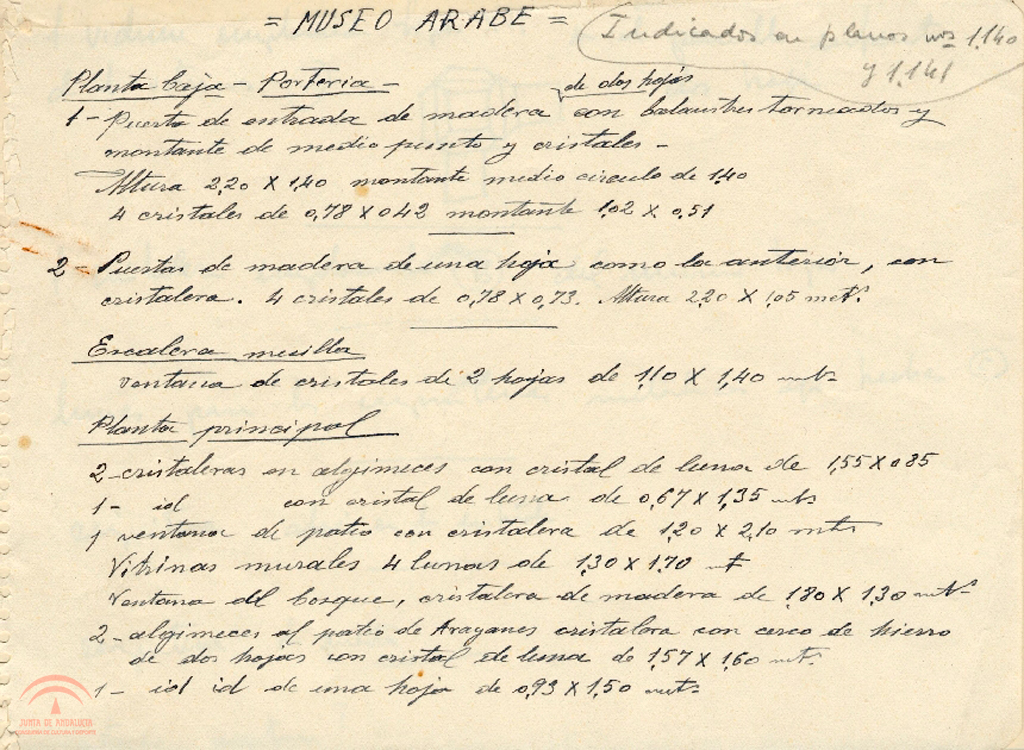 = MUSEO ARABE =
Indicados en planos nos 1,140
y 1,141
Planta baja - Porteria -
de dos hojas
1 - Puerta de entrada de madera con balaustres torneados y
montante de medio punto y cristales -
Altura 2,20 X 1,40 montante medio circulo de 1,40
4 cristales de 0,78 X 042 montante 1,02 X 0,51
2 - Puertas de madera de una hoja como la anterior, con
cristalera. 4 cristales de 0,78 X 0,73. Altura 2,20 X 1,05 mets.
Escalera mesilla
Ventana de cristales de 2 hojas de 1,10 X 1,40 mts
Planta principal
2 - cristaleras en algimeces con cristal de luna de 1,55 X 0,85
1 - id con cristal de luna de 0,67 X 1,35 mts
1 ventana de patio con cristalera de 1,20 X 2,10 mts
Vitrinas murales 4 lunas de 1,30 X 1,70 mt
Ventana del bosque, cristalera de madera de 1,80 X 1,30 mts
2 - algimeces al patio de Arayanes cristalera con cerco de hierro
de dos hojas con cristal de luna de 1,57 X 1,60 mts
1 - id id de una hoja de 0,93 X 1,50 mts
JUNTA DE ANDALUCIA
CONSEJERIA DE CULTURA Y DEPORTE